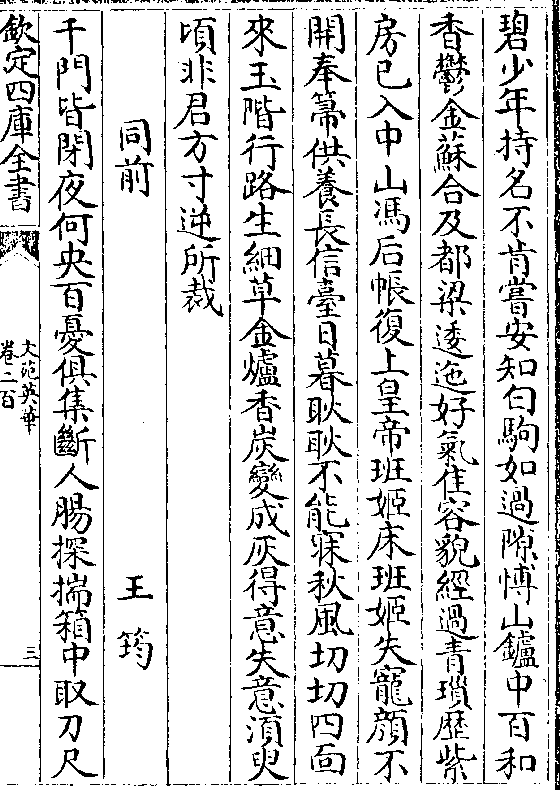 碧少年持名不肯嘗安知白駒如過隙博山鑪中百和
香鬱金蘇合及都梁逶迤好氣佳容貌經過青瑣歷紫
房已入中山馮后帳復上皇帝班姬床班姬失寵顔不
開奉箒供養長信臺日暮耿耿不能寐秋風切切四面
來玉階行路生細草金爐香炭變成灰得意失意湏臾
頃非君方寸逆所裁
同前 王筠
千門皆閉夜何央百憂俱集斷人腸探揣箱中取刀尺
欽定四庫全書
文苑英華
卷二百
三